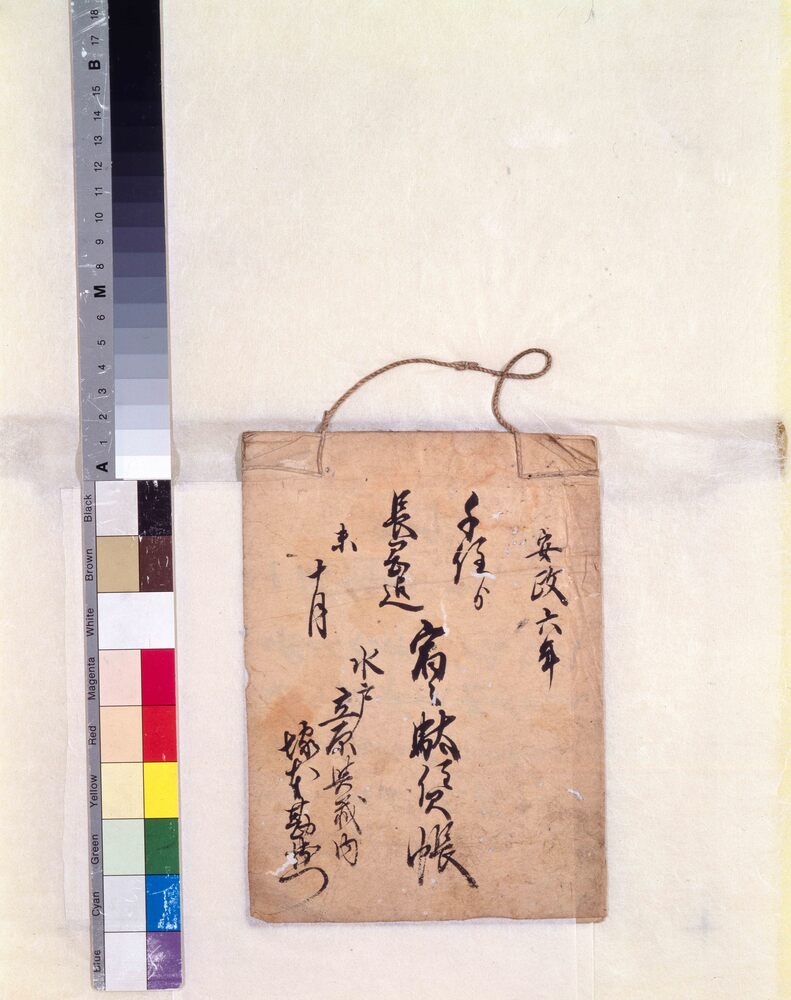 安政六年
千住ゟ
長岡迄
宿々駄賃帳
未
十月
水戸
立原
内
塚本勘
B 17 18
15
14
13
12
11
10
9
8
M
6
5
4
3
2
1
A
Black
Brown
White
Magenta
Red
Yellow
Green
Cyan
Blue